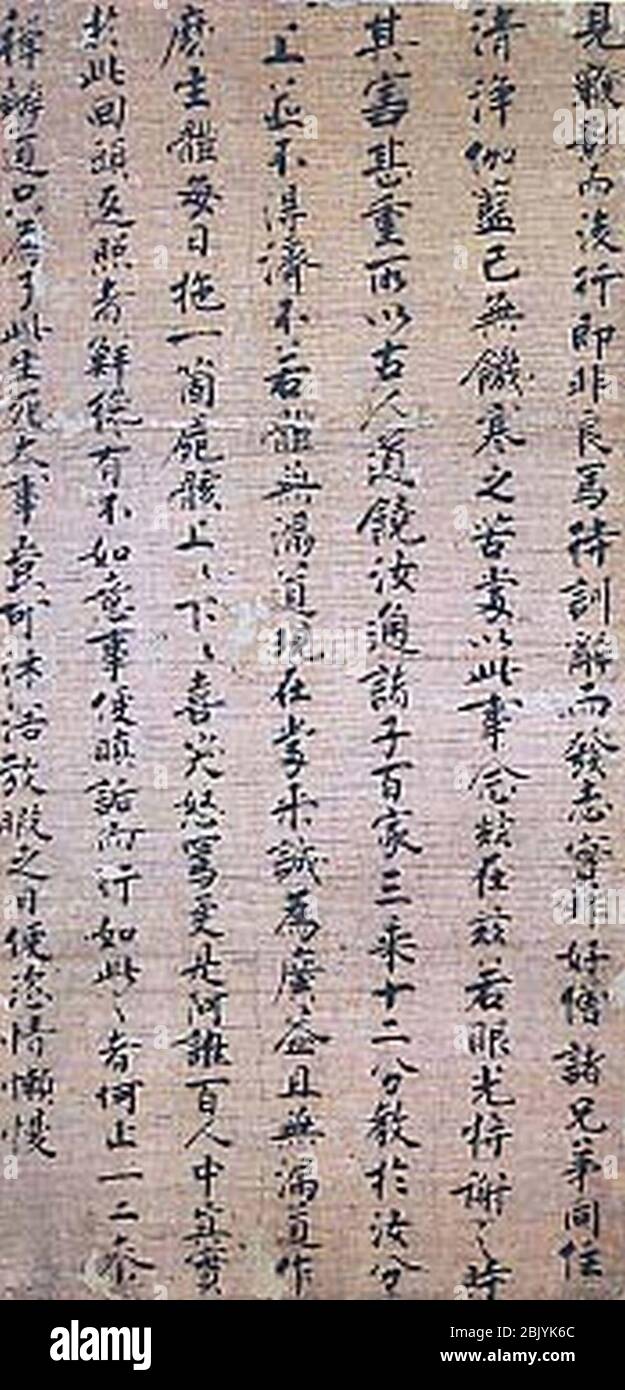 見鞭影而後行即非良馬待訓辭而發志寔非好僧諸兄弟同住
清淨伽藍已無饑寒之苦當以此事念茲在茲若眼光將謝之時
其害甚重所以古人道饒汝通諸子百家三乘十二分教於汝分
上並不得濟不若體無漏道現在當來誠為廣益且無漏道作
麼生體每日拖一箇屍骸上〻下〻喜笑怒罵更是何誰百人中筭實
於此回頭返照者鮮縱有不如意事便瞋詬而行如此之者何止一二參
禪辦道只為了此生死大事豈可沐浴放暇之日便恣情懶慢
alamy
Image ID: 2BJYK6C
www.alamy.com